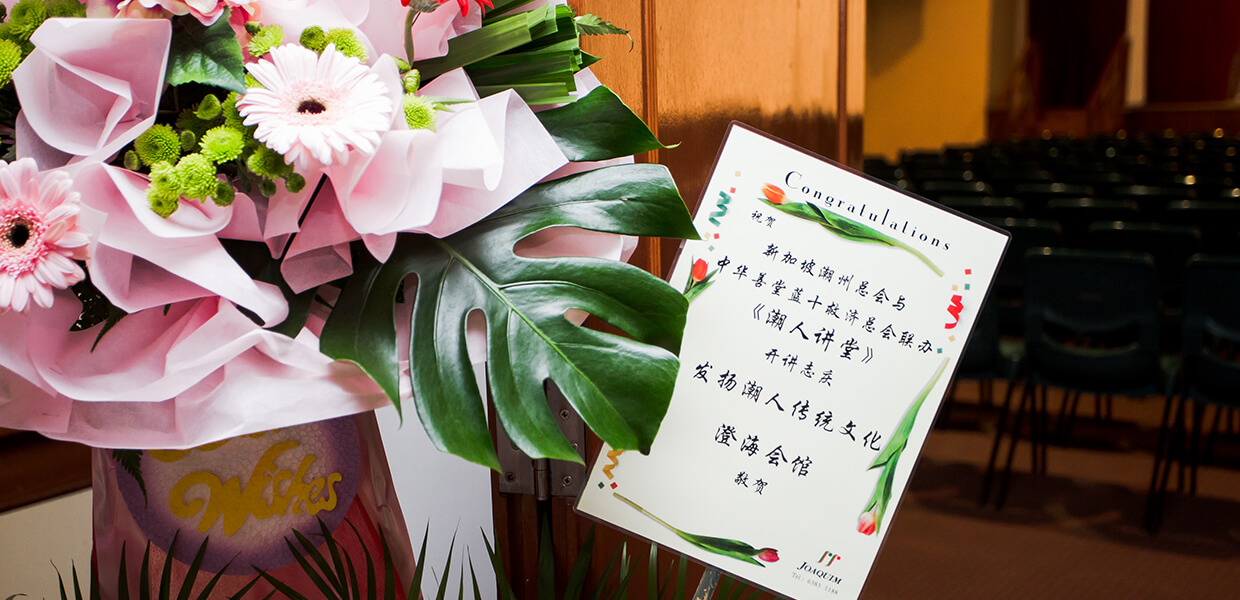 Congratulations
祝贺
新加坡潮州总会与
中华善堂蓝十救济总会联办
《潮人讲堂》
开讲志庆
发扬潮人传统文化
澄海会馆
敬贺
JOAQUIM
Tel: 6383 1188
Wishes